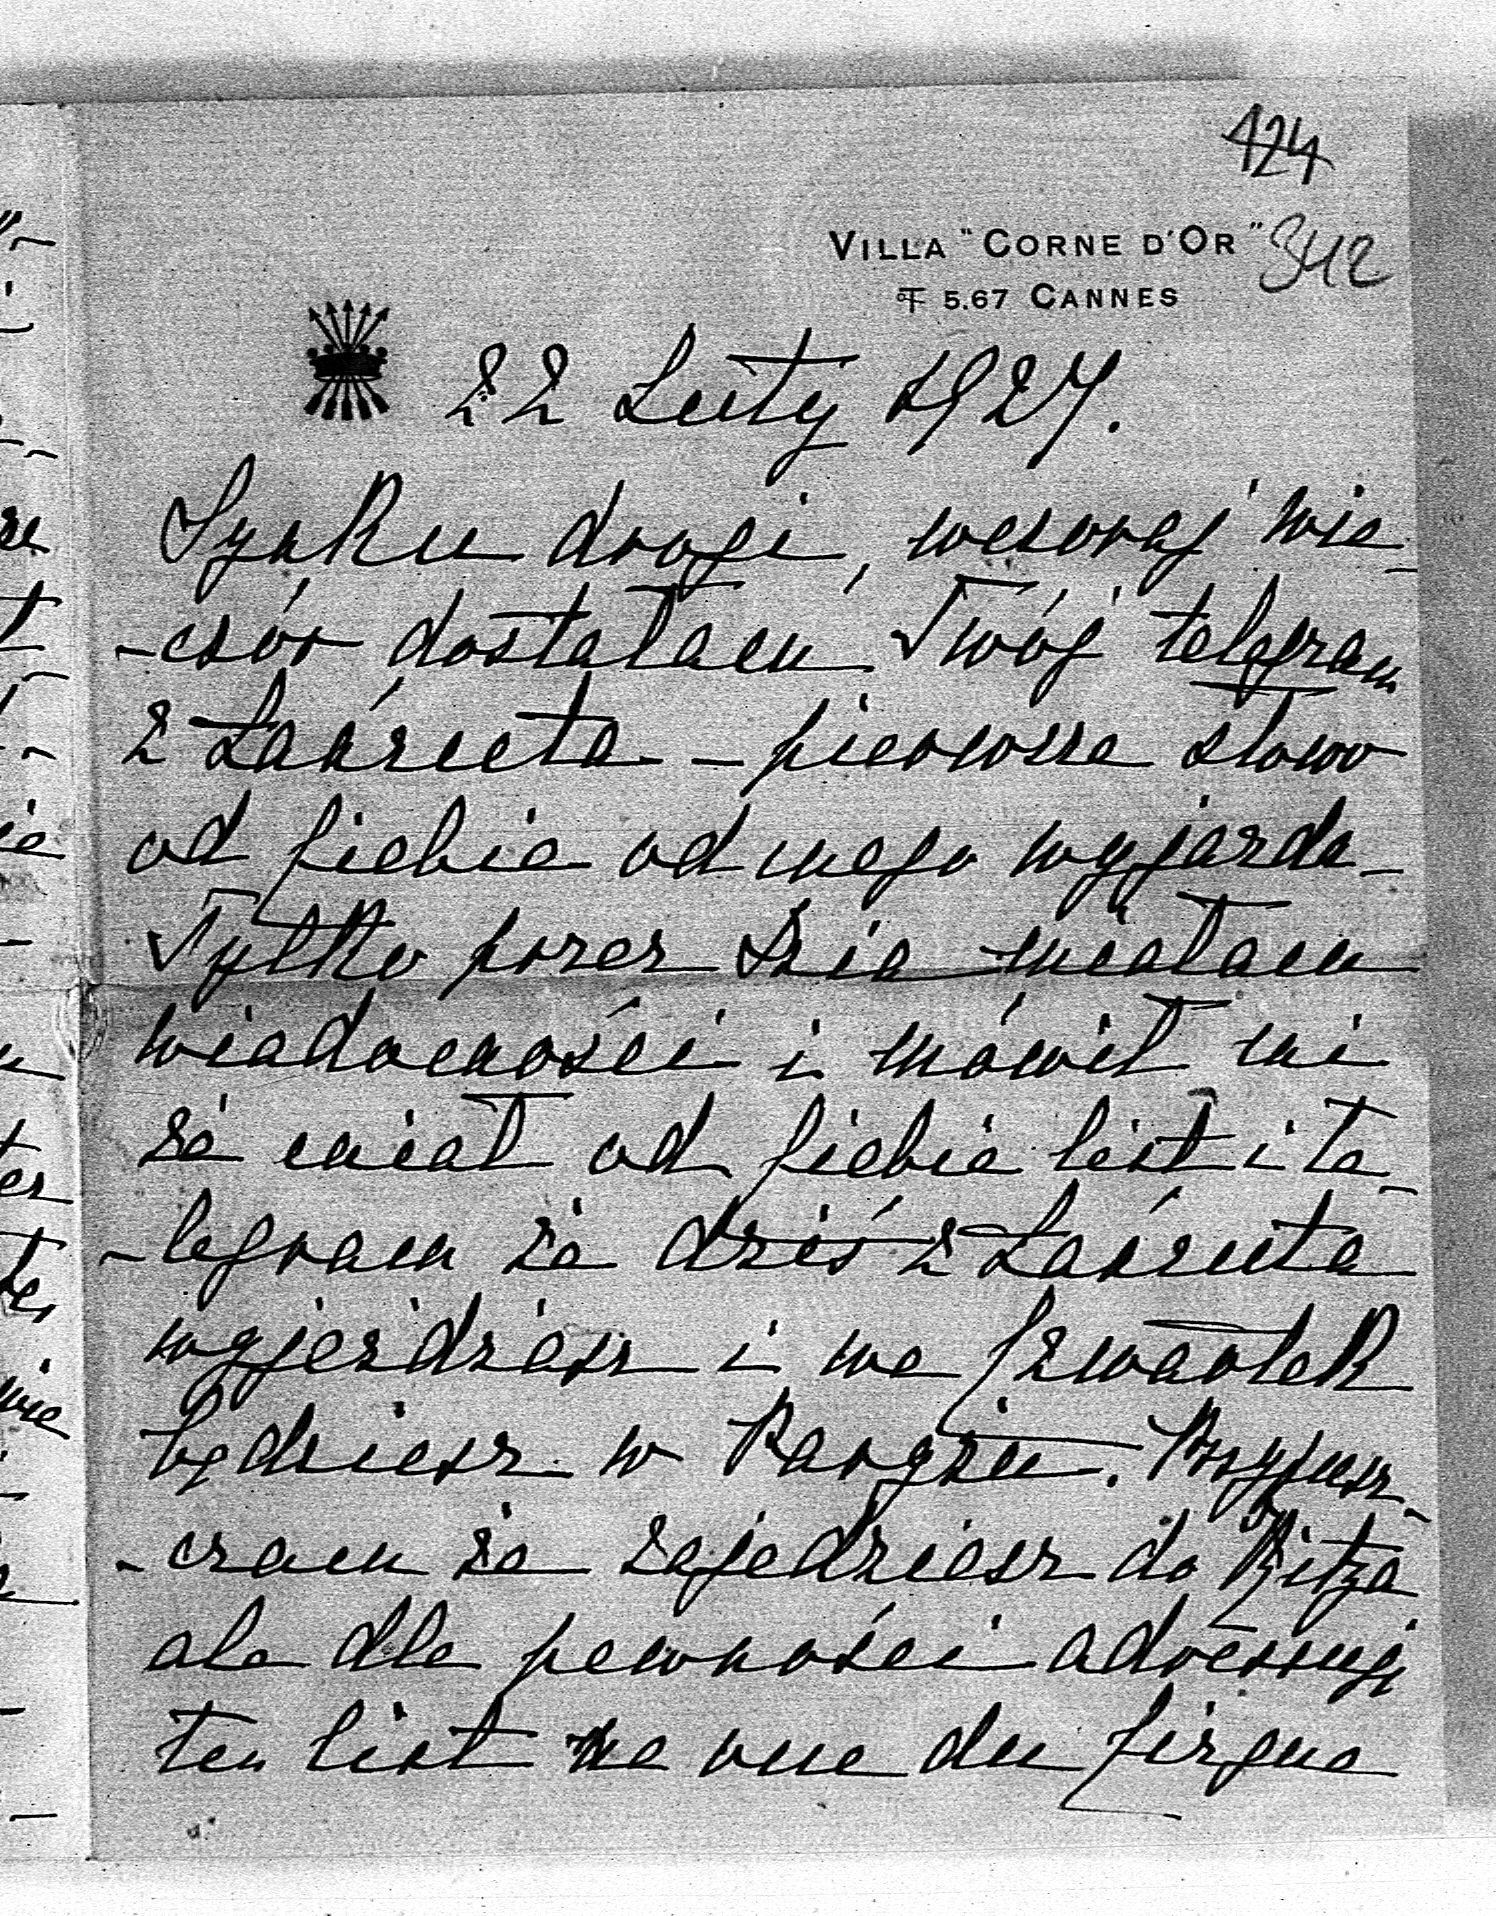 424
VILLA "CORNE D'OR" 342
5.67 CANNES
22 Luty 1927.
Synku drogi, wczoraj wie-
-czór dostałam Twój telegram
z Łańcuta - pierwsze słowo
od Ciebie od mego wyjazdu -
Tylko przez Dzia miałam
wiadomości i mówił mi
że miał od Ciebie list i te-
-legram że dziś z Łańcuta
wyjeżdżasz i we Czwartek
będziesz w Paryżu. Przypusz-
-czam że zajedziesz do Ritza
ale dla pewności adressuję
ten list na rue du Cirque